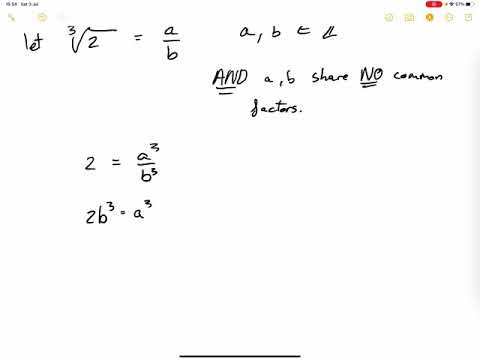 15:54 Sat 3 Jul
57%
let ∛2 = a/b a, b ∈ ℤ
AND a, b share NO common
factors.
2 = a³/b³
2b³ = a³